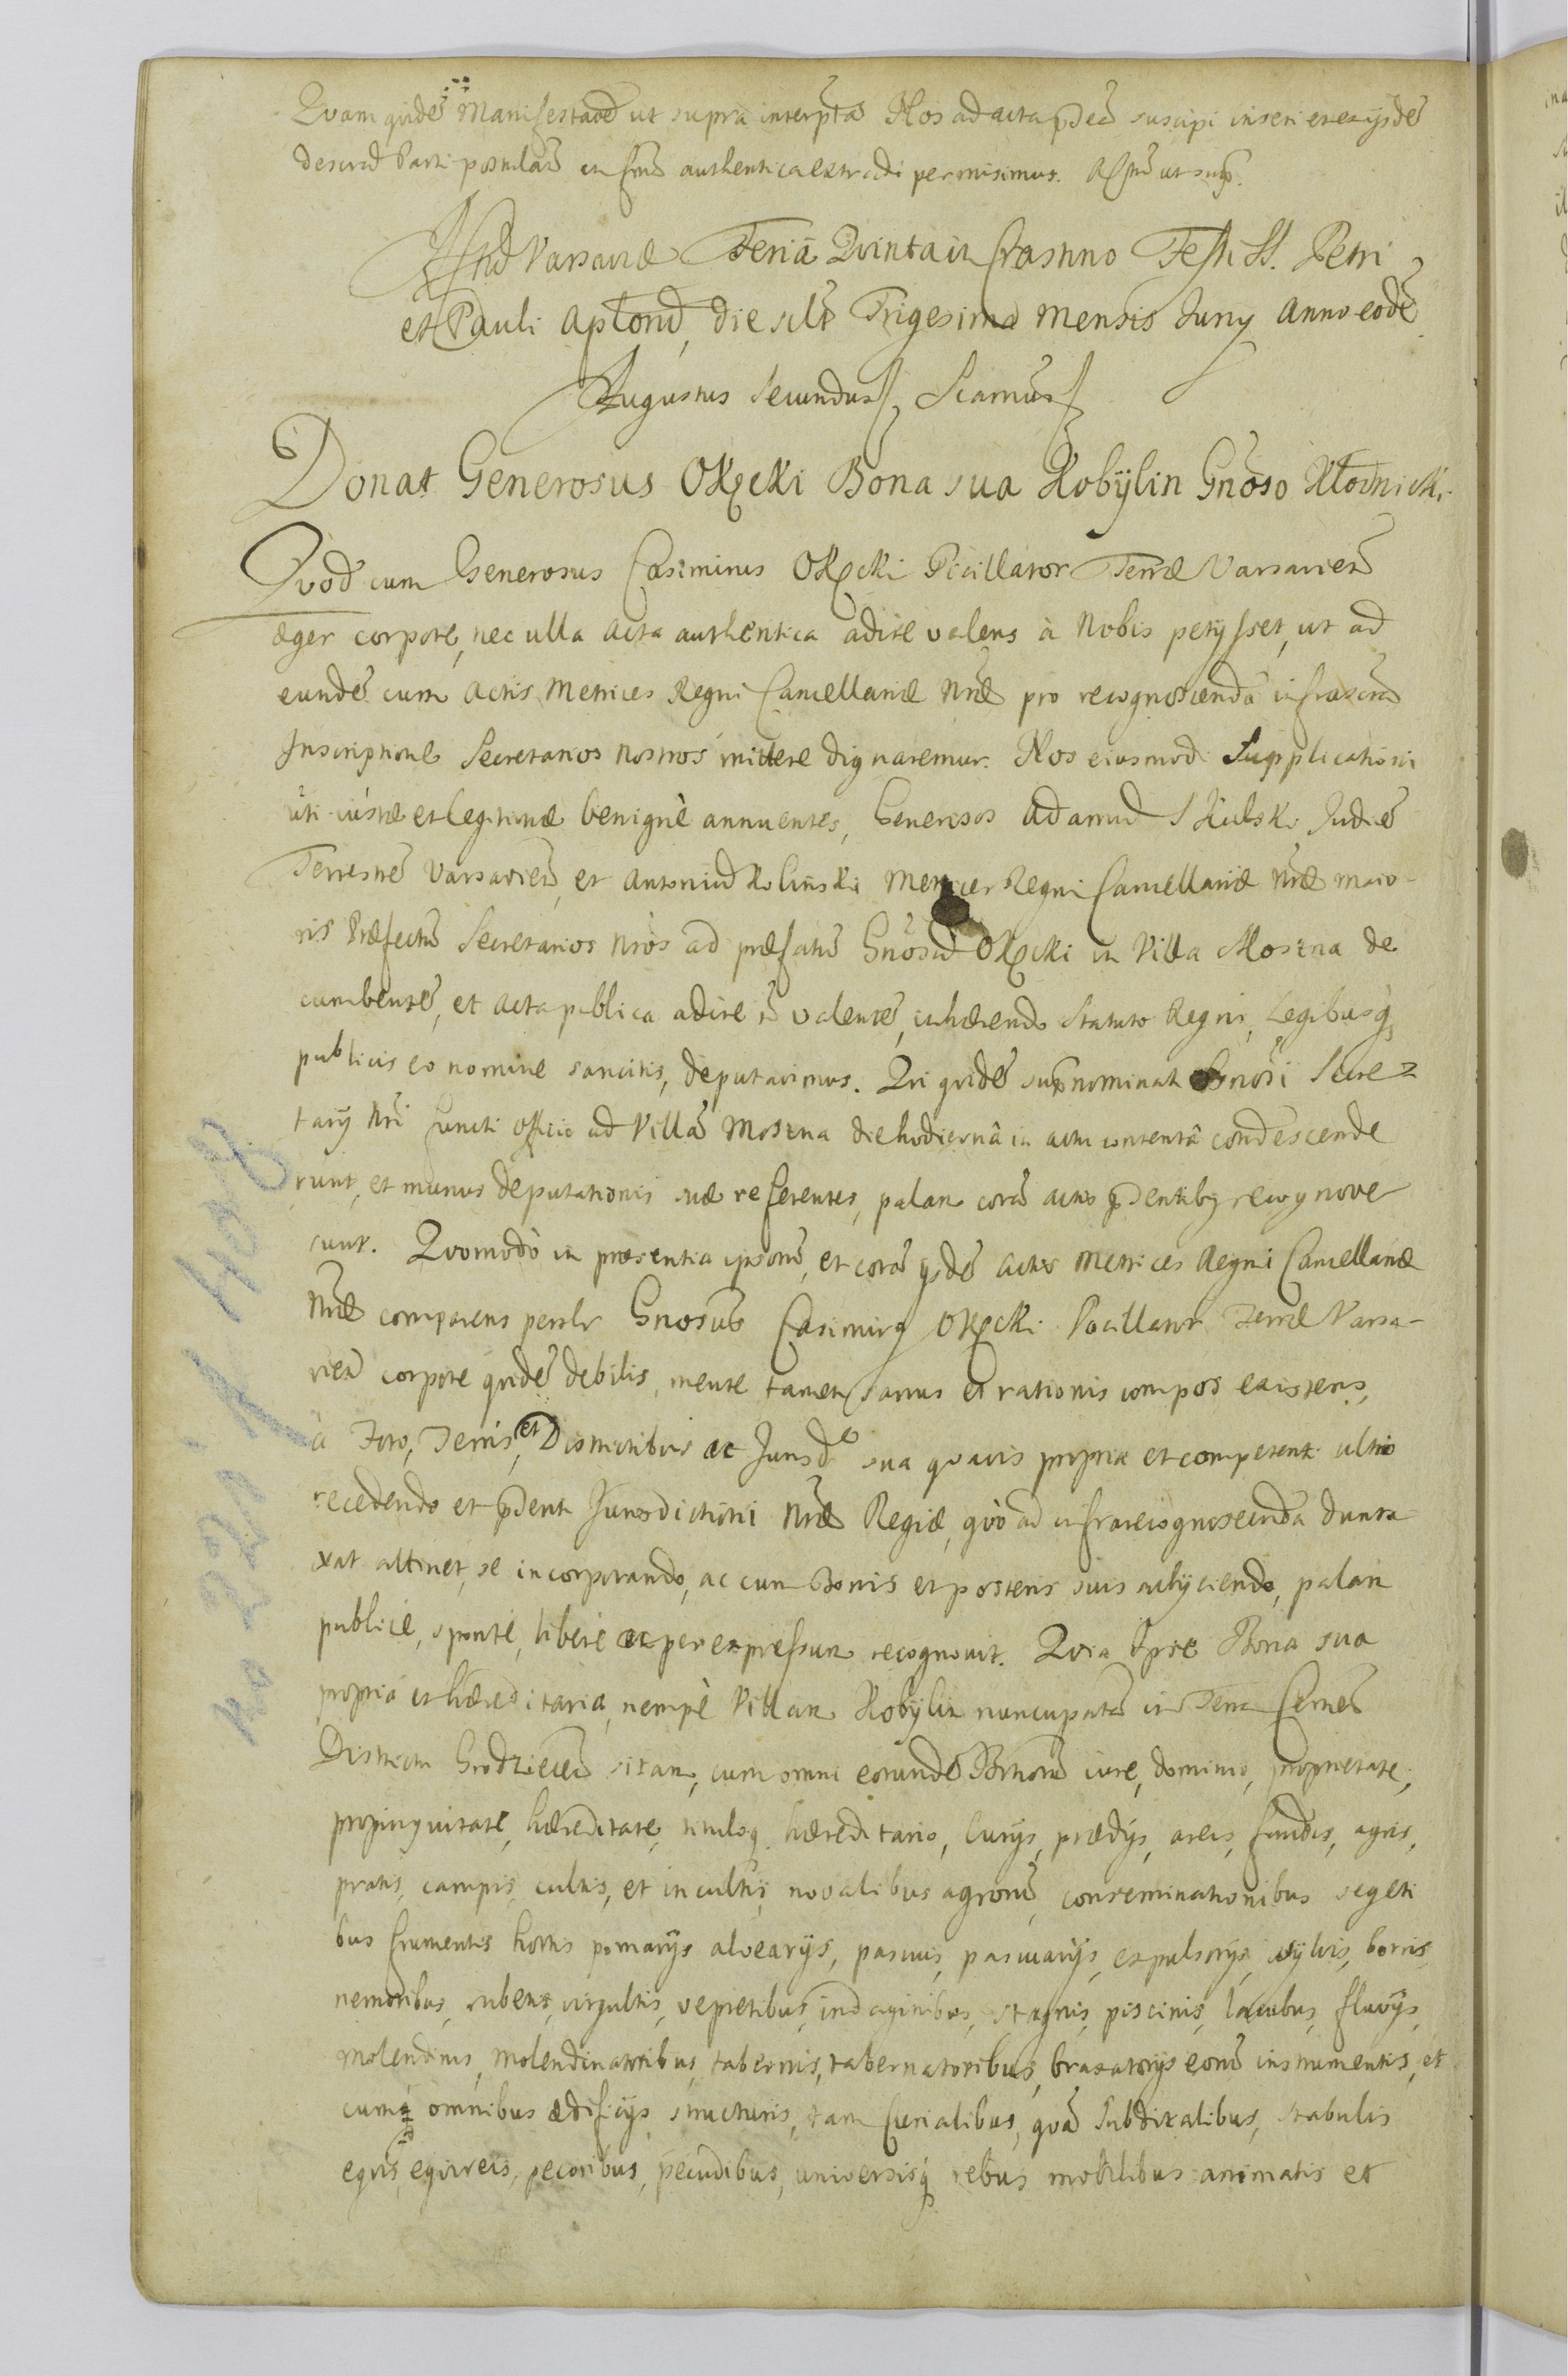 Quam quidē Manifestaōē ut supra interp̄tā Nos ad acta p̄dcā suscipi inseri et ex ijsdē
descrid Parti postulañ in formā authentica extradi permisimus. Actū ut supr̄.
Actū Varsaviæ Feria Quinta in Crastino Festi SS. Petri
et Pauli Apltorū, die scilt Trigesima Mensis Juny Anno eodē
Augustus Secundus Sciamus
Donat Generosus Okęcki Bona sua Kobÿlin Gnoso Kłodnicki.
Quod cum Generosus Casimirus Okęcki Pocillator Terræ Varsavień
æger corpore, nec ulla acta authentica adire valens à Nobis petijsset, ut ad
eundē cum Actis Metrices Regni Cancellariæ Nræ pro recognoscenda infrascrta
Inscriptione Secretarios nostros mittere dignaremur. Nos eiusmodi Supplicationi
uti iustæ et legitimæ benignè annuentes, Generosos Adamū Skulski Judicē
Terrestrē Varsavień, et Antoniū Koliński Metrices Regni Cancellariæ Nræ maio-
ris Præfectū Secretarios Nros ad præfatū Gnosū Okęcki in Villa Moszna de
cumbentē, et acta publica adire n̄ valentē, inhærendo Statuto Regni, Legibusq,
publicis eo nomine sancitis, deputavimus. Qui quidē supr̄nominati Gnosi Secre=
tarÿ Nri functi officio ad Villā Moszna die hodiernâ in actu contentâ condescende
runt, et munus deputationis suæ referentes, palam corā actis p̄sentibq recognove
runt. Quomodò in præsentia ipsorū, et corā ijsdē Actis Metrices Regni Cancellariæ
Nræ comparens persltr Gnosus Casimirq Okęcki Pocillator Terræ Varsa-
vień corpore quidē debilis, mente tamen sanus et rationis compos existens,
à Foro, Terris, et Districtibus ac Jurisde sua quavis propria et competenti ultro
recedendo et p̄senti Jurisdictioni Nræ Regiæ, quò ad infrarecognoscenda dunta
xat attinet, se incorporando, ac cum Bonis et posteris suis adijciendo, palàm
publicè, sponte, liberè ac per expressum recognovit. Quia Ipse Bona sua
propria et hæreditaria, nempè Villam Kobylin nuncupatā in Terra Cernen̄
Districtu Grodziecen̄ sitam, cum omni eorundē Bonorū iure, dominio, proprietate,
propinquitate, hæreditate, tituloq hæreditario, Curijs, prædijs, areis, fundis, agris,
pratis, campis, cultis, et incultis, novalibus agrorū, conseminationibus segeti
bus frumentis hortis pomarÿs alvearÿs, pascuis, pascuarÿs, expulsorÿs, sylvis, borris,
nemoribus, rubetis, virgultis, vepretibus, indaginibus, stagnis, piscinis, lacubus, fluvÿs,
molendinis, molendinatoribus, tabernis, tabernatoribus, braxatorÿs eorū instrumentis, et
cumq omnibus ædificÿs, structuris, tam Curialibus, quā Subditalibus, stabulis
equis, equireis, pecoribus, pecudibus, universisq rebus mobilibus animatis et